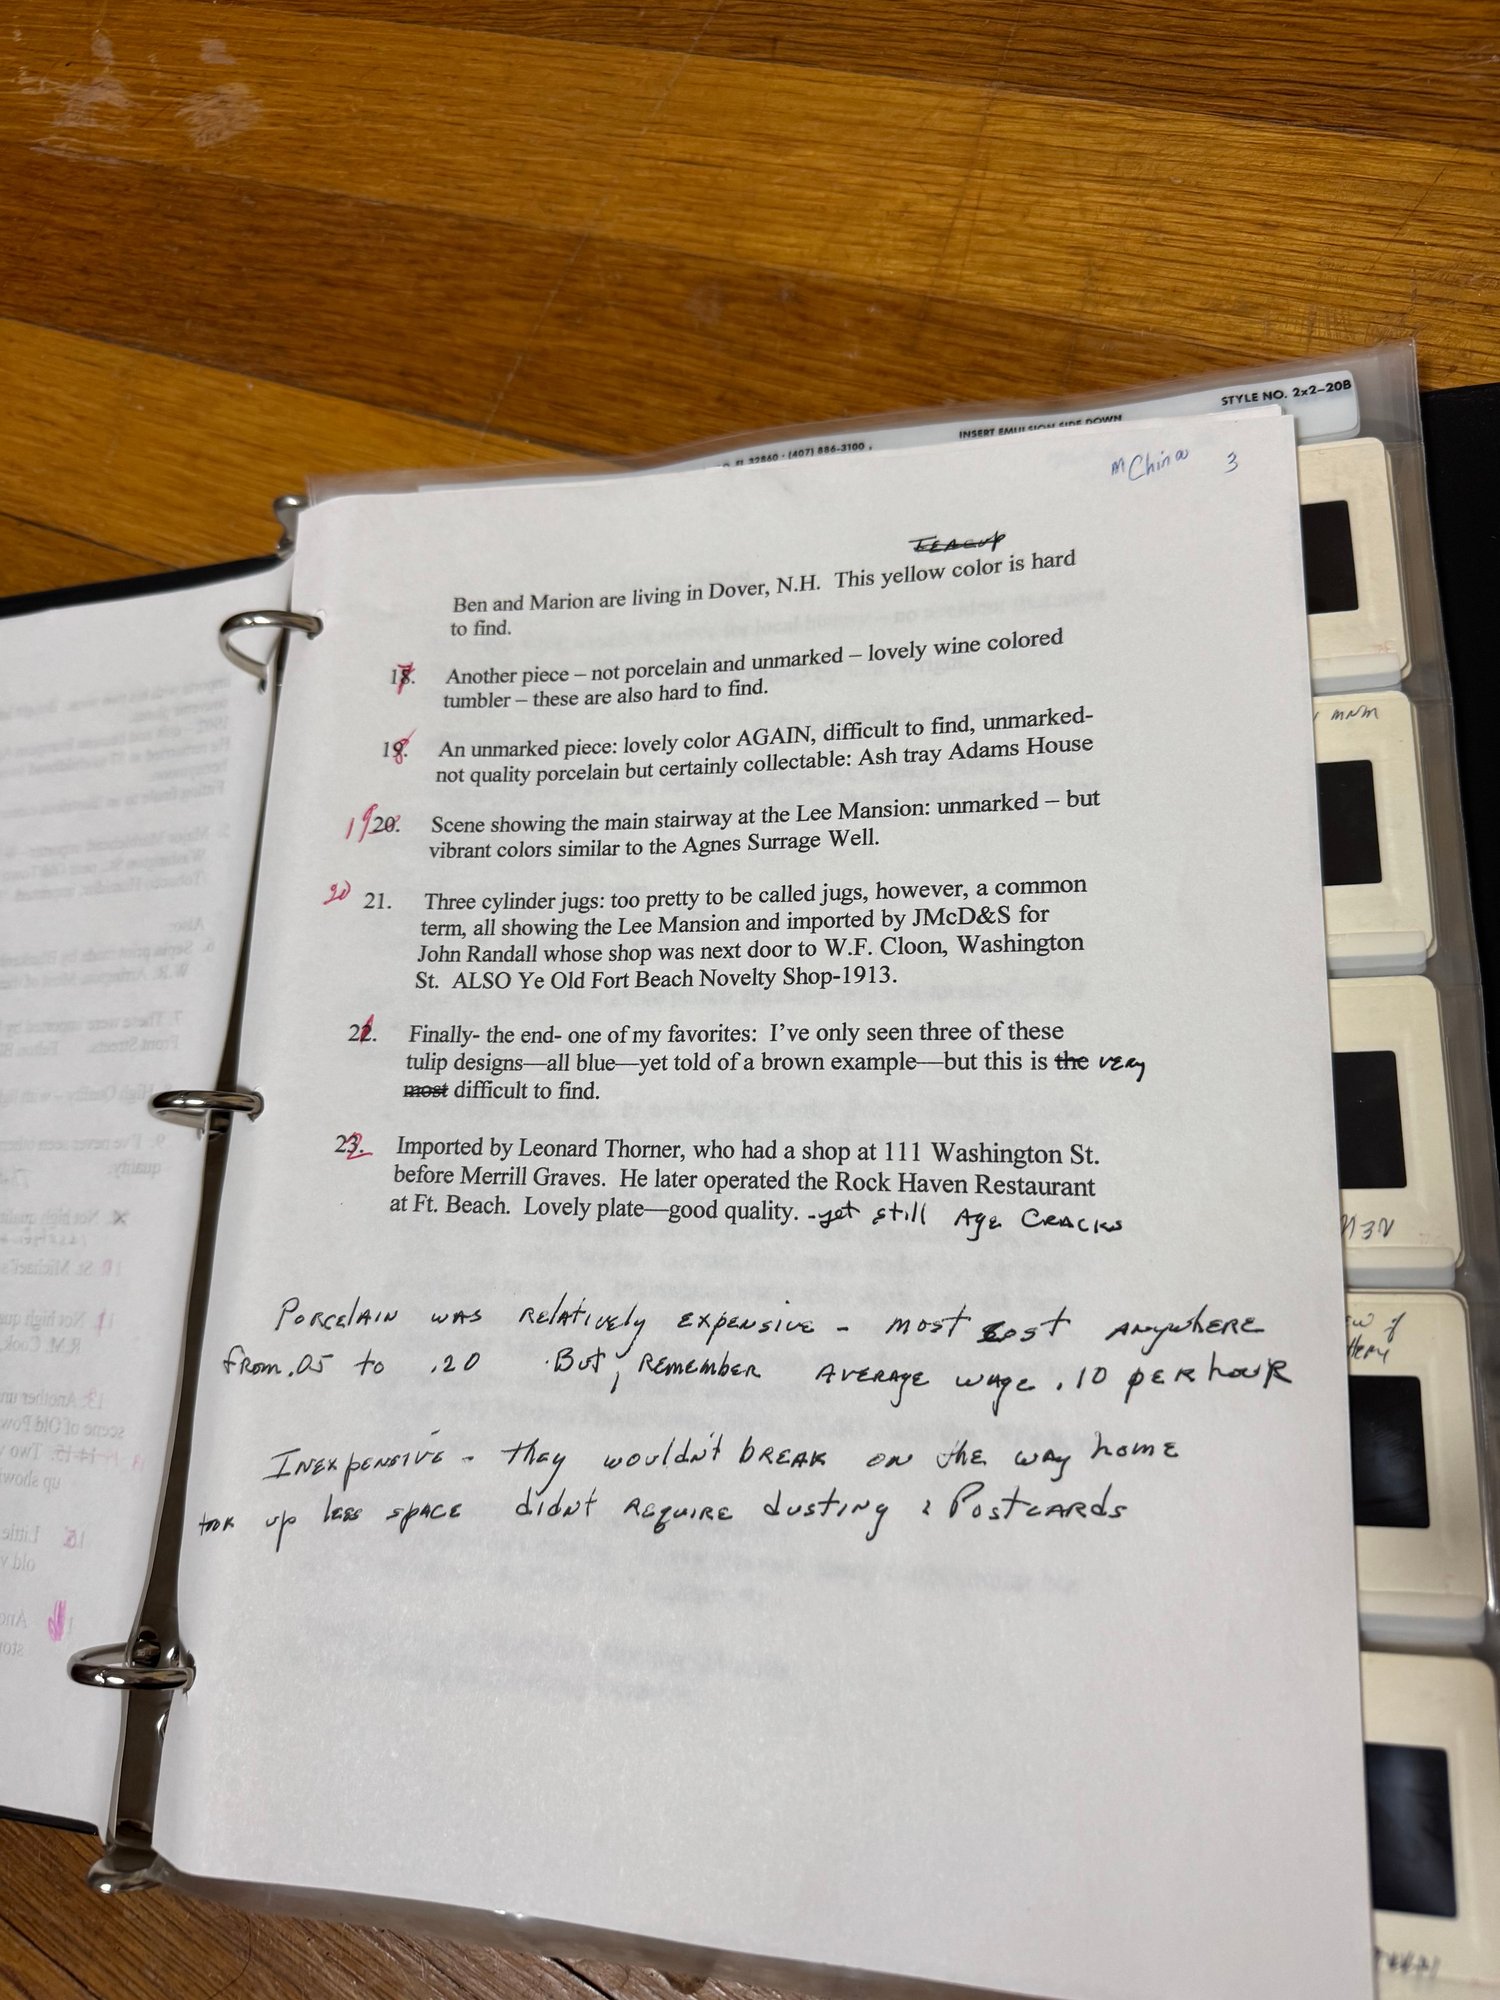 STYLE NO. 2x2-20B
INSERT EMULSION SIDE DOWN
FL 32860 · (407) 886-3100
mChina 3
Teacup
Ben and Marion are living in Dover, N.H. This yellow color is hard
to find.
17. Another piece – not porcelain and unmarked – lovely wine colored
tumbler – these are also hard to find.
18. An unmarked piece: lovely color AGAIN, difficult to find, unmarked-
not quality porcelain but certainly collectable: Ash tray Adams House
19 20. Scene showing the main stairway at the Lee Mansion: unmarked – but
vibrant colors similar to the Agnes Surrage Well.
20 21. Three cylinder jugs: too pretty to be called jugs, however, a common
term, all showing the Lee Mansion and imported by JMcD&S for
John Randall whose shop was next door to W.F. Cloon, Washington
St. ALSO Ye Old Fort Beach Novelty Shop-1913.
21. Finally- the end- one of my favorites: I've only seen three of these
tulip designs—all blue—yet told of a brown example—but this is the very
most difficult to find.
22. Imported by Leonard Thorner, who had a shop at 111 Washington St.
before Merrill Graves. He later operated the Rock Haven Restaurant
at Ft. Beach. Lovely plate—good quality. -yet still Age Cracks
Porcelain was relatively expensive - most cost anywhere
from .05 to .20 But, remember average wage .10 per hour
Inexpensive - they wouldn't break on the way home
took up less space didn't require dusting : Postcards